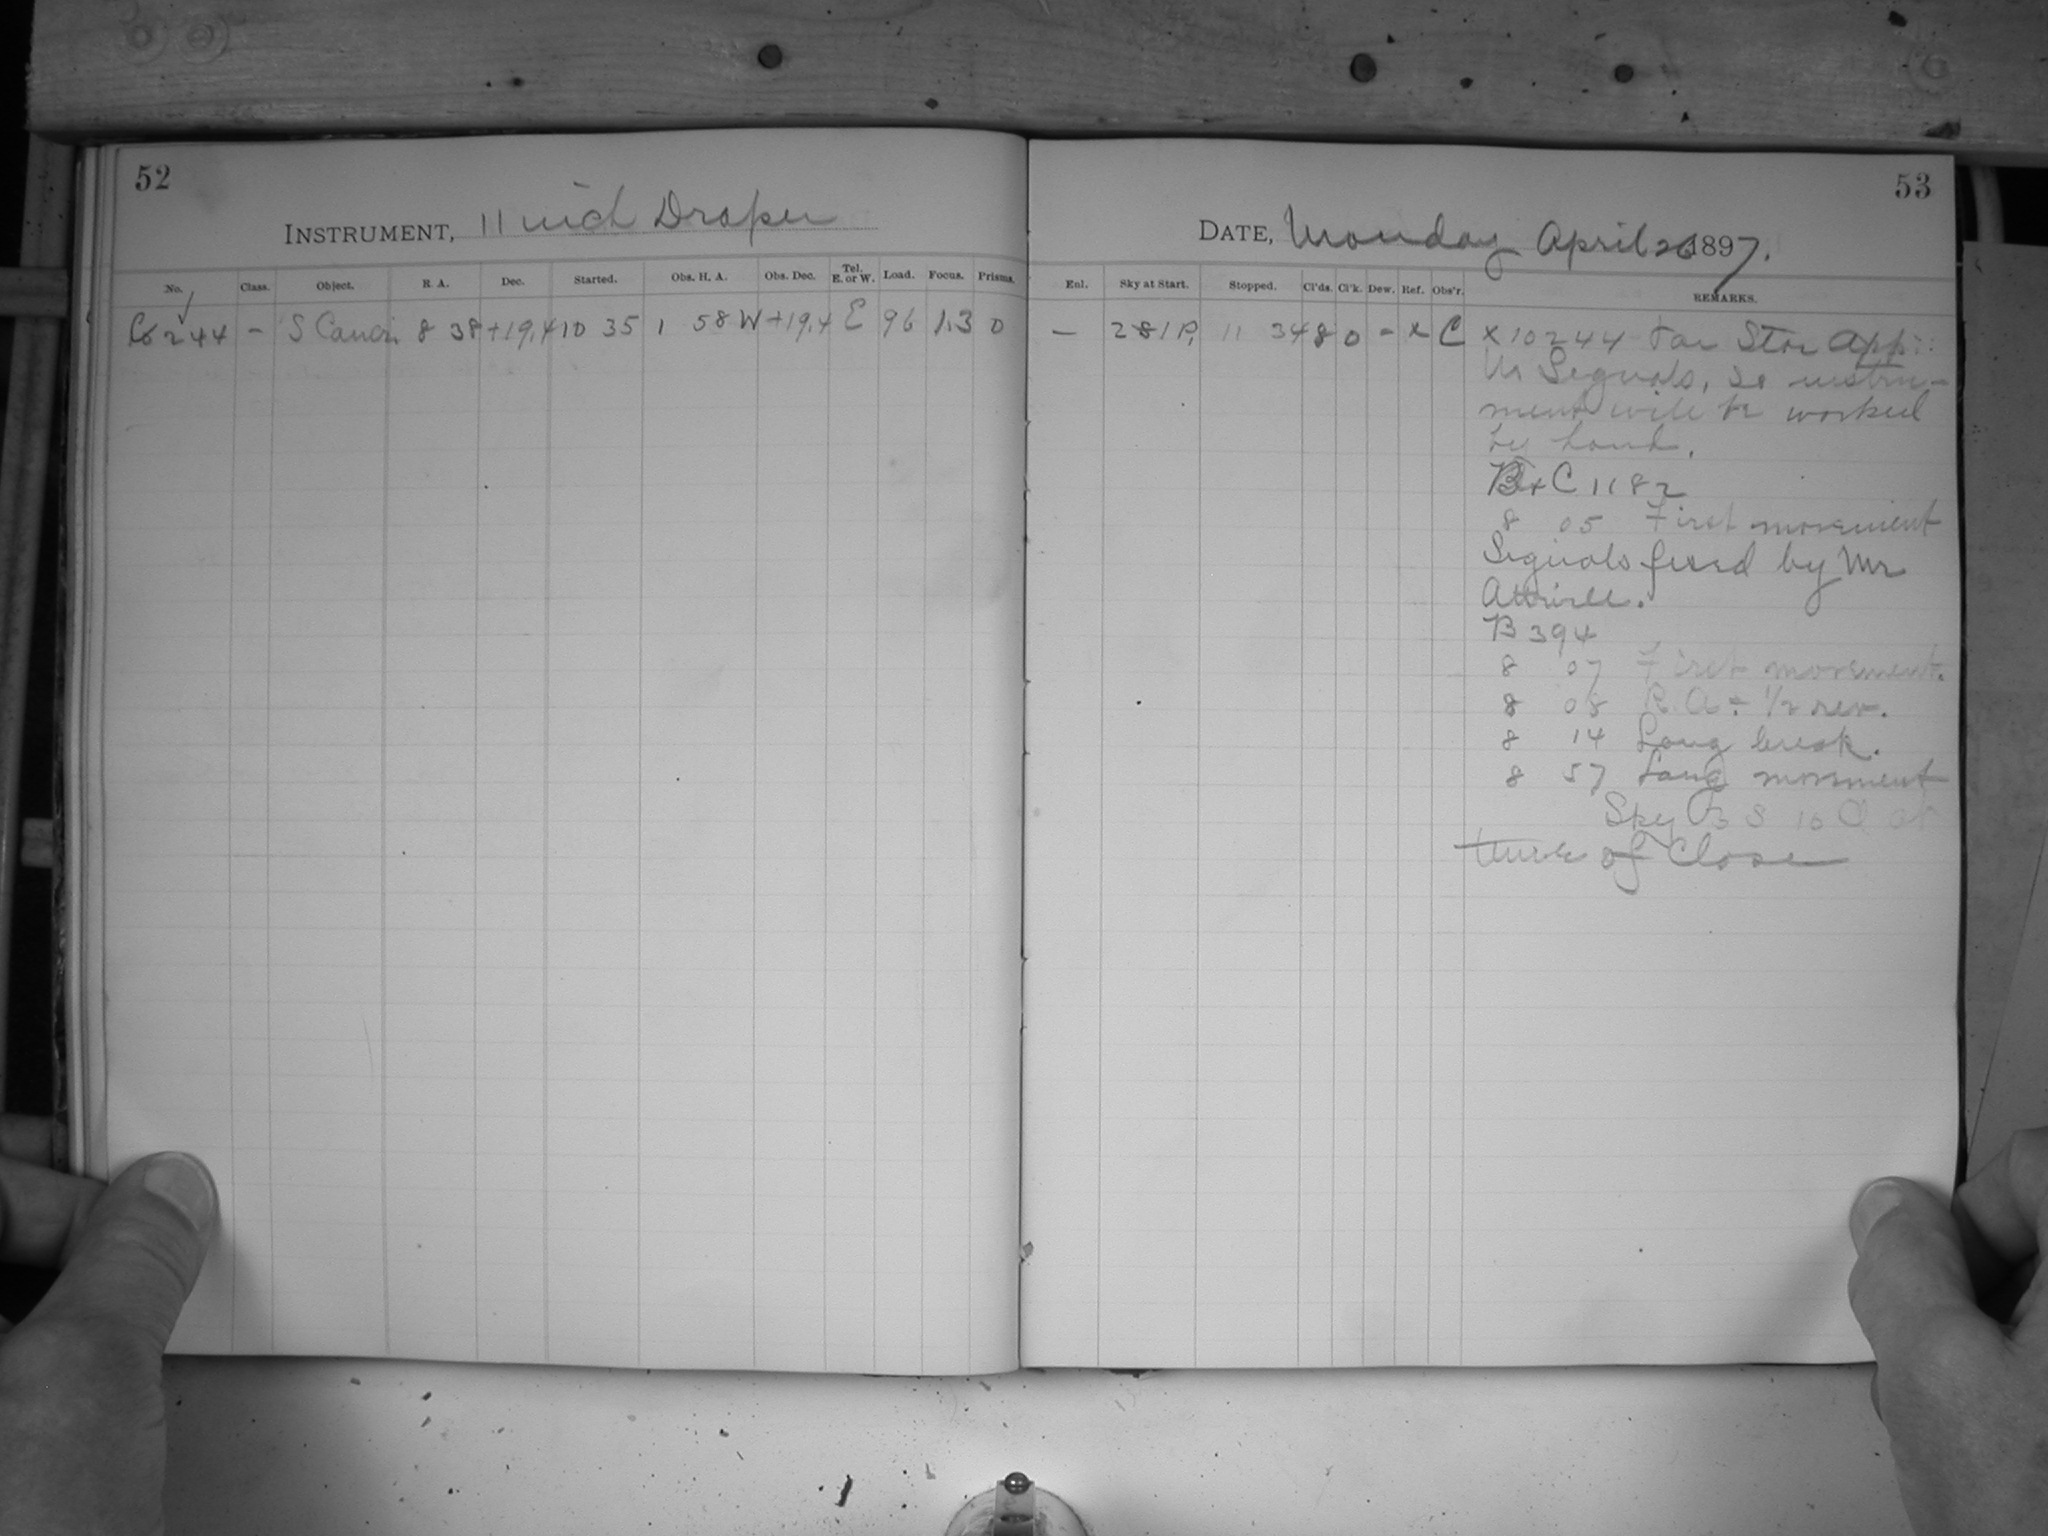 52
INSTRUMENT, 11 inch Draper
No. Class. Object. R. A. Dec. Started. Obs. H. A. Obs. Dec. Tel. E. or W. Load. Focus. Prisms.
10244 – S Cancri 8 38 +19.4 10 35 1 58 W +19.4 E 96 1.3 0
53
DATE, Monday April 26 1897.
Enl. Sky at Start. Stopped. Cl'ds. Cl'k. Dew. Ref. Obs'r. REMARKS.
– 11 34 8 0 – x C x 10244 Star App
Signals, so instru-
ment will be worked
by hand.
B + C 1182
8 05 First movement
Signals fixed by Mr
B 394
8 07 First movement.
8 08 R.A. 1/2 rev.
8 14 Long break.
8 57 Long movement
Sky at
time of Close